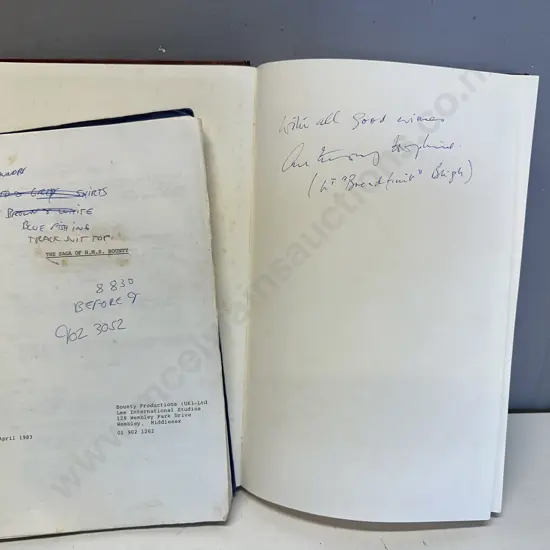 SHIRTS
BROWN & WHITE
BLUE
TRACK SUIT TOP
THE SAGA OF H.M.S. BOUNTY
8 830
BEFORE 9
902 3052
Bounty Productions (UK) Ltd
Lee International Studios
128 Wembley Park Drive
Wembley, Middlesex
01 902 1262
April 1983
With all good wishes
Anthony Hopkins.
(Lt "Breadfruit" Bligh)